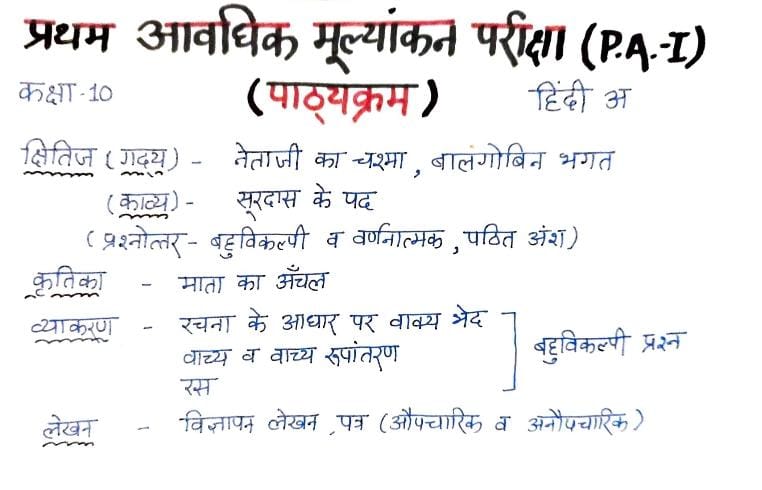 प्रथम आवधिक मूल्यांकन परीक्षा (P.A.-I)
कक्षा-10 (पाठ्यक्रम) हिंदी अ
क्षितिज (गद्य) - नेताजी का चश्मा, बालगोबिन भगत
(काव्य) - सूरदास के पद
(प्रश्नोत्तर - बहुविकल्पी व वर्णनात्मक, पठित अंश)
कृतिका - माता का अँचल
व्याकरण - रचना के आधार पर वाक्य भेद
वाच्य व वाच्य रूपांतरण बहुविकल्पी प्रश्न
रस
लेखन - विज्ञापन लेखन, पत्र (औपचारिक व अनौपचारिक)